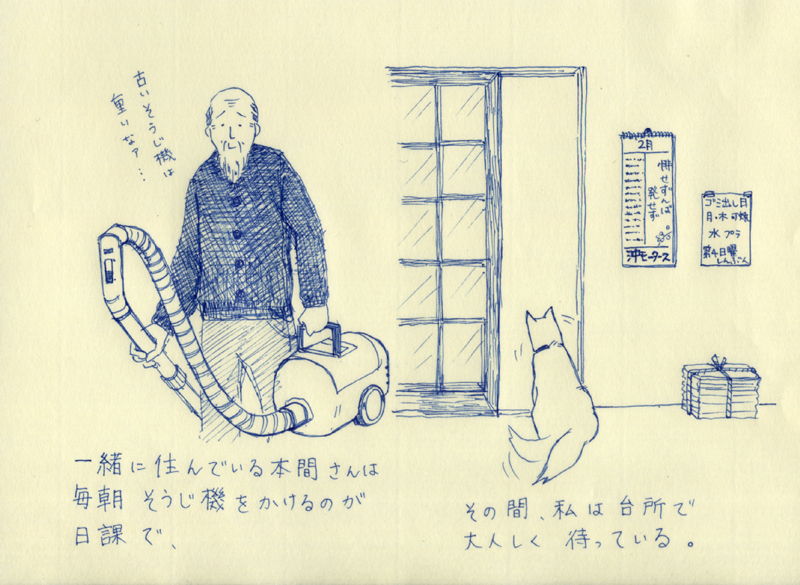 古いそうじ機は
重いなァ…
一緒に住んでいる本間さんは
毎朝そうじ機をかけるのが
日課で、
2月
悱せずんば
発せず。
沖モータース
ゴミ出し日
月・木 可燃
水 プラ
第4日曜
しんぶん
その間、私は台所で
大人しく待っている。